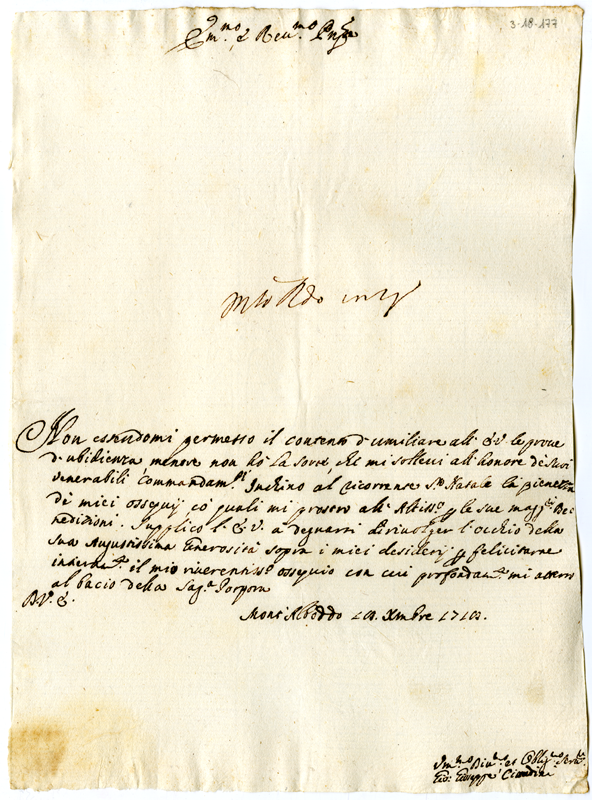 3-18-177
Em.mo e Rev.mo Pnpe
Mto Rdo
Non essendomi permesso il contento d'umiliare all' E.V. le prove
d'ubidienza, mentre non hò la sorte, che mi sollevi all'honore de Suoi
venerabili commandam.ti Inchino al ricorrente S.to Natale la pienezza
de miei ossequij, co' quali mi prostro all' Altiss.o p le sue mag.ri Be-
nedizioni. Supplico l' E.V. a degnarsi di rivolger l'occhio della
sua Augustissima Generosità sopra i miei desiderij p felicitarne
il mio riverentiss.o ossequio con cui profondam.te mi atterro
al bacio della Sag.a Porpora
D.V.E.
Mont'Alboddo 10. Xmbre 1710.
Um.mo Div.mo et Obblig.mo Serv.re
Giuseppe